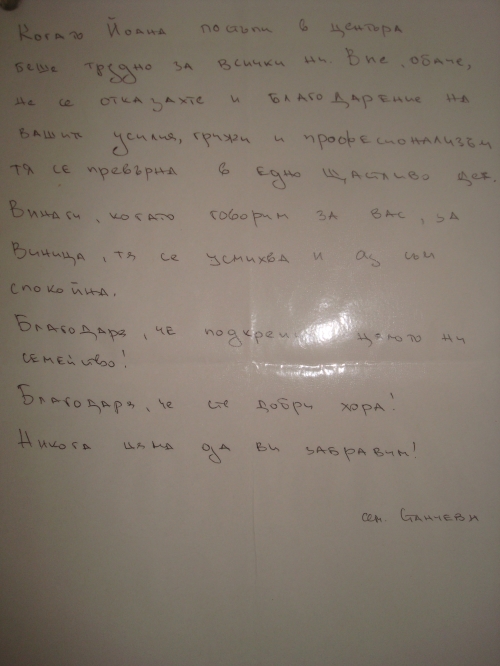 Когато Йоана постъпи в центъра
беше трудно за всички ни. Вие, обаче,
не се отказахте и благодарение на
вашите усилия, грижи и професионализъм
тя се превърна в едно щастливо дете.
Винаги, когато говорим за вас, за
Виница, тя се усмихва и аз съм
спокойна.
Благодаря, че цялото ни
семейство!
Благодаря, че сте добри хора!
Никога няма да ви забравим!
сем. Станчеви